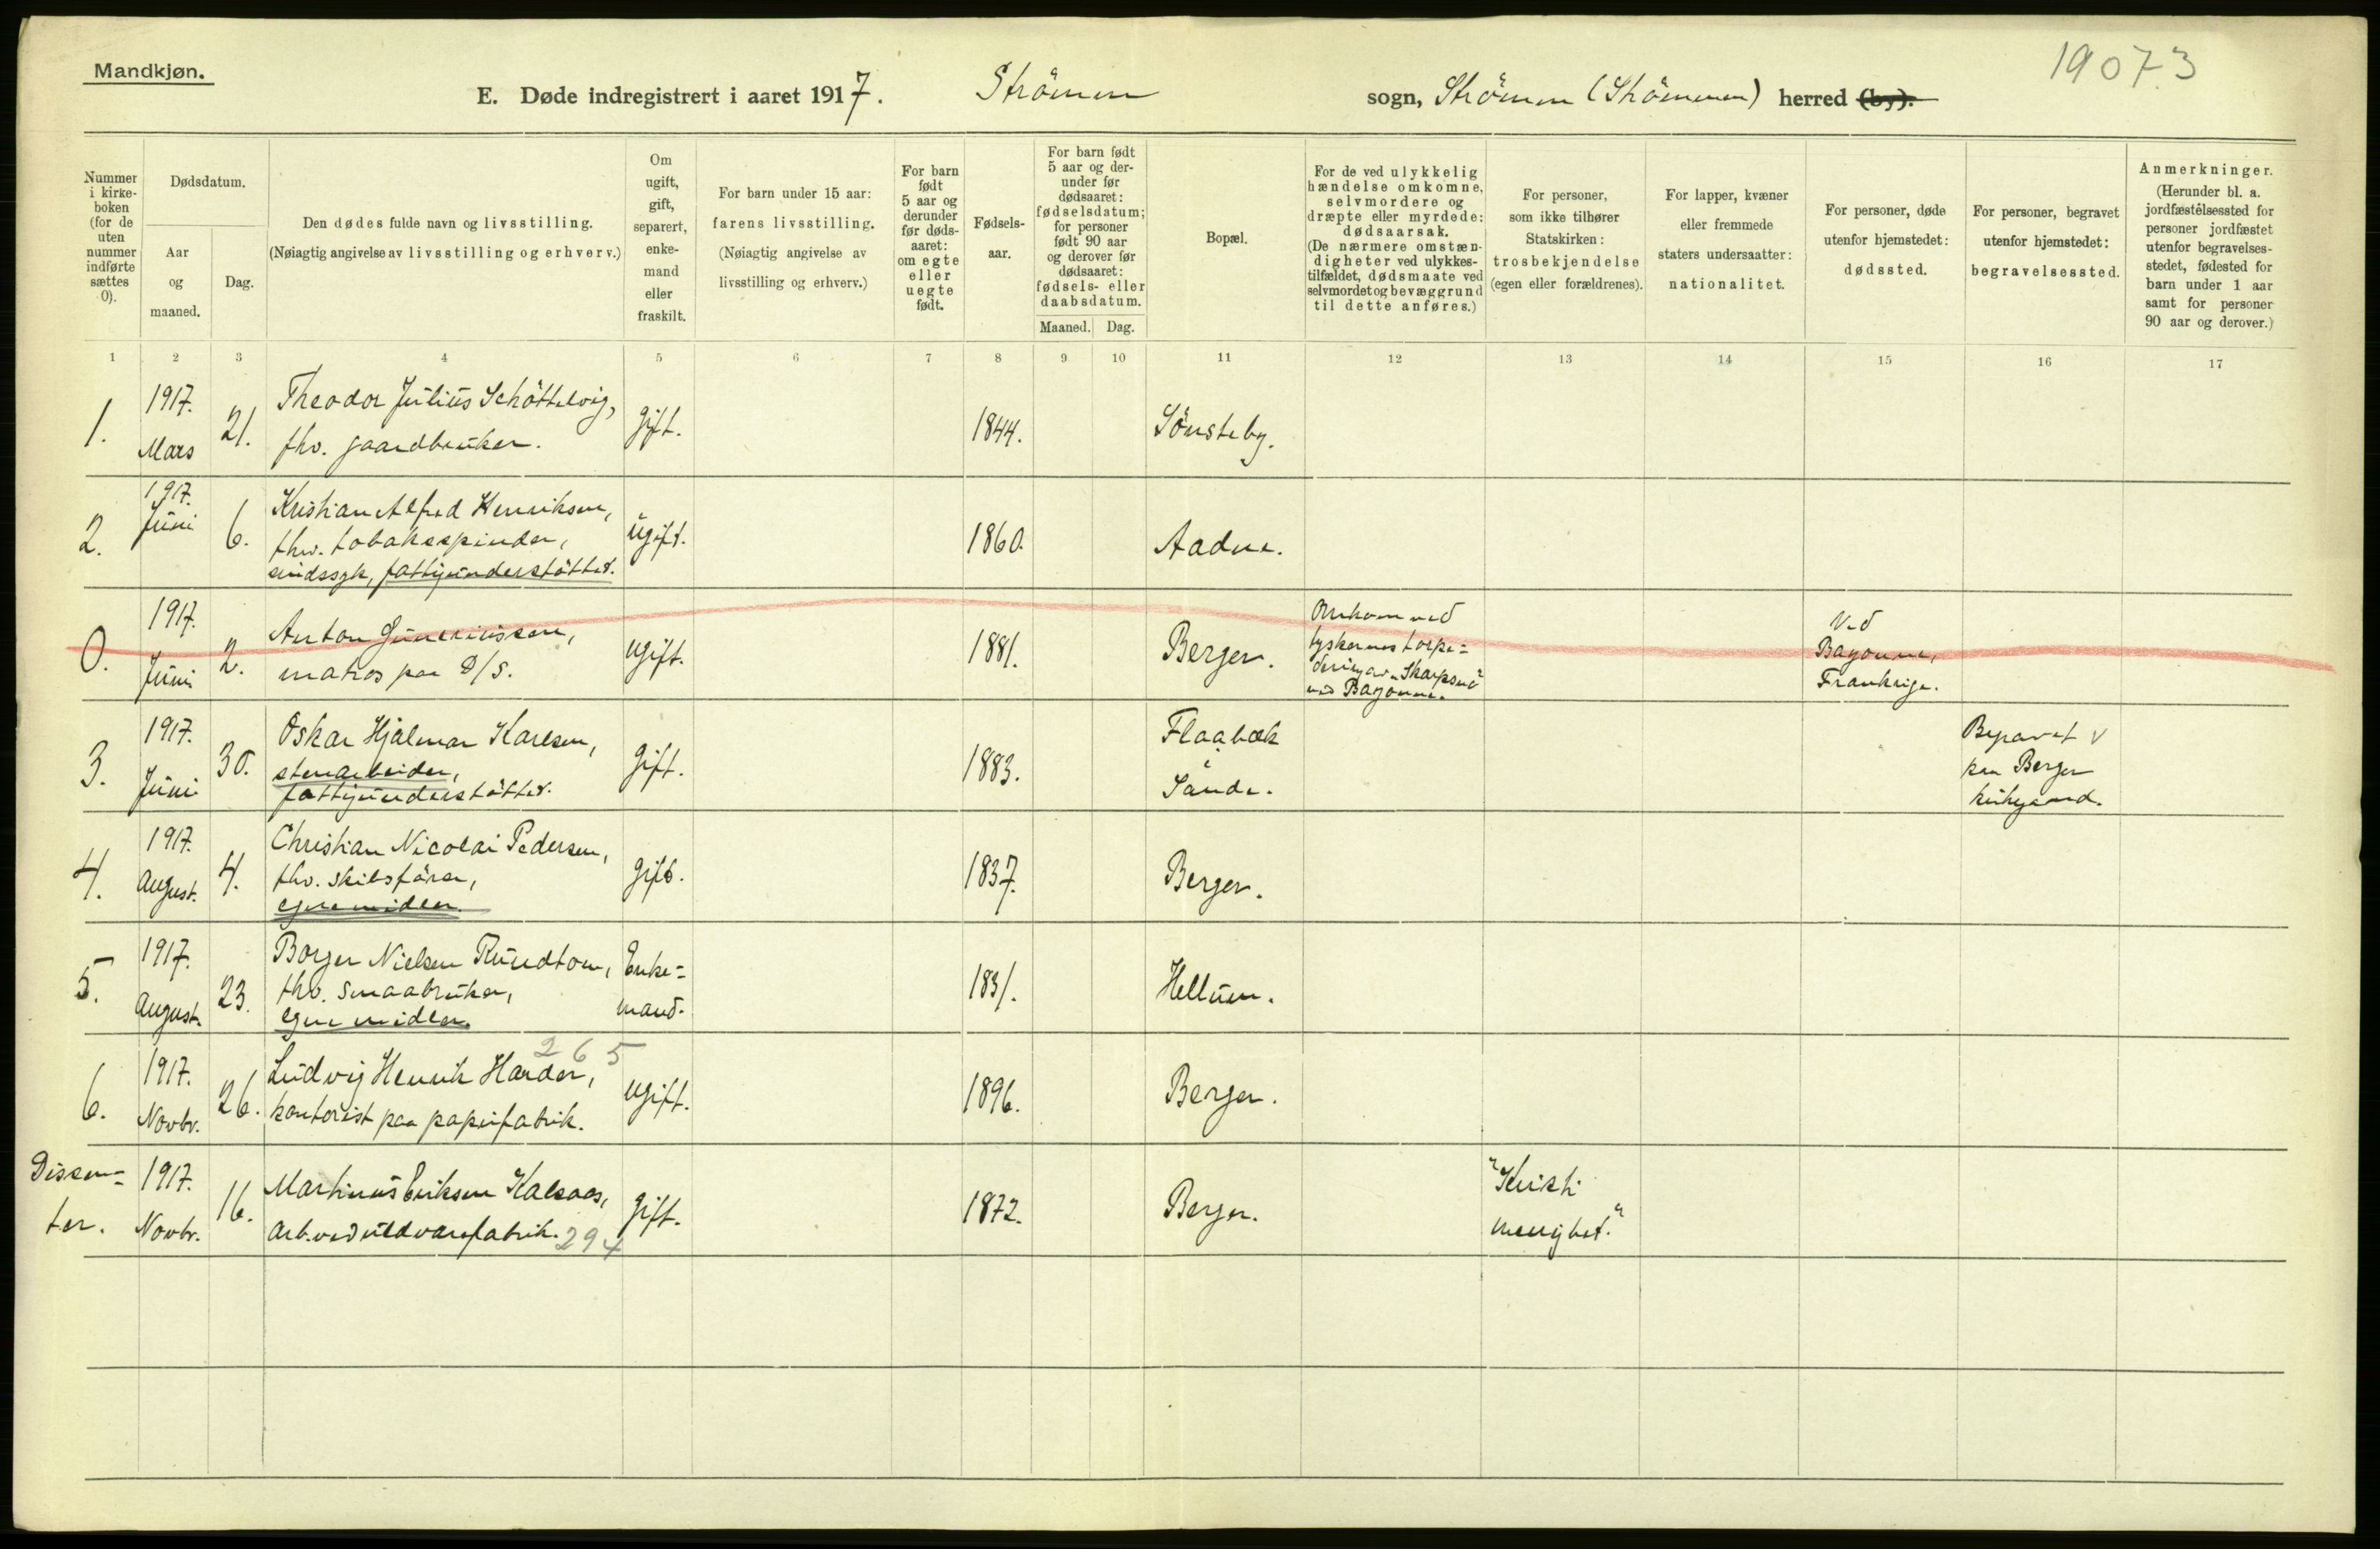 Mandkjøn.
19073
E. Døde indregistrert i aaret 1917. Strömm sogn, Strömm (Strömmen) herred (by).
Nummer i kirke-boken (for de uten nummer indførte sættes 0).
Dødsdatum.
Aar og maaned.
Dag.
Den dødes fulde navn og livsstilling.
(Nøiagtig angivelse av livsstilling og erhverv.)
Om ugift, gift, separert, enke-mand eller fraskilt.
For barn under 15 aar:
farens livsstilling.
(Nøiagtig angivelse av livsstilling og erhverv.)
For barn født 5 aar og derunder før døds-aaret: om egte eller uegte født.
Fødsels-aar.
For barn født 5 aar og der-under før dødsaaret: fødselsdatum; for personer født 90 aar og derover før dødsaaret: fødsels- eller daabsdatum.
Maaned. Dag.
Bopæl.
For de ved ulykkelig hændelse omkomne, selvmordere og dræpte eller myrdede: dødsaarsak.
(De nærmere omstæn-digheter ved ulykkes-tilfældet, dødsmaate ved selvmordet og bevæggrund til dette anføres.)
For personer, som ikke tilhører Statskirken: trosbekjendelse (egen eller forældrenes).
For lapper, kvæner eller fremmede staters undersaatter: nationalitet.
For personer, døde utenfor hjemstedet: dødssted.
For personer, begravet utenfor hjemstedet: begravelsessted.
Anmerkninger.
(Herunder bl. a. jordfæstelsessted for personer jordfæstet utenfor begravelses-stedet, fødested for barn under 1 aar samt for personer 90 aar og derover.)
1 2 3 4 5 6 7 8 9 10 11 12 13 14 15 16 17
1. 1917. Mars 21. Theodor Julius Schöttelvig, fhv. gaardbruker. gift. 1844. Sönsteby.
2. 1917. Juni 6. Kristian Alfred Henriksen, fhv. tobaksspinder, sindssyk, fattigunderstöttet. ugift. 1860. Aadne.
0. 1917. Juni 2. Anton Guneriussen, matros paa D/S. ugift. 1881. Berger. Omkom ved tyskernes torpe=dering av "Skarpsno" ved Bayonne. Ved Bayonne, Frankrige.
3. 1917. Juni 30. Oskar Hjalmar Karlsen, stenarbeider, fattigunderstöttet. gift. 1883. Flaabæk i Sande. Begravet v paa Berger kirkegaard.
4. 1917. August. 4. Christian Nicolai Pedersen, fhv. skibsförer, egne midler. gift. 1837. Berger.
5. 1917. August. 23. Borger Nielsen Rundtom, fhv. smaabruker, egne midler. Enke=mand. 1831. Hellum.
265
6. 1917. Novbr. 26. Ludvig Henrik Harder, kontorist paa papirfabrik. ugift. 1896. Berger.
Dissen=ter. 1917. Novbr. 16. Martinus Eriksen Kalsaas, arb. ved uldvarefabrik. 294 gift. 1872. Berger. "Kristi menighet."